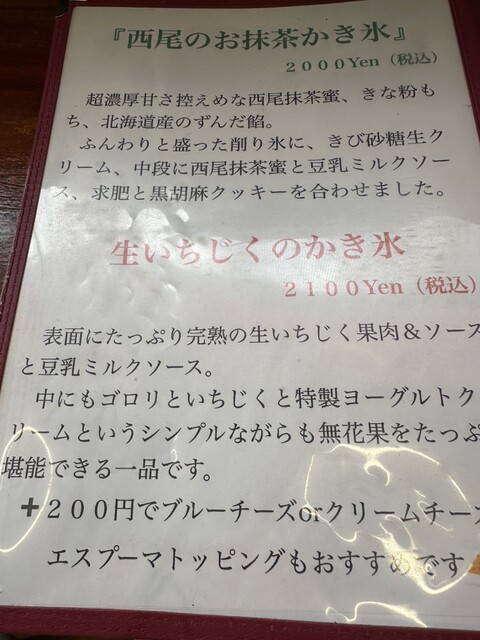 『西尾のお抹茶かき氷』
２０００Yen（税込）
超濃厚甘さ控えめな西尾抹茶蜜、きな粉も
ち、北海道産のずんだ餡。
ふんわりと盛った削り氷に、きび砂糖生ク
リーム、中段に西尾抹茶蜜と豆乳ミルクソー
ス、求肥と黒胡麻クッキーを合わせました。
生いちじくのかき氷
２１００Yen（税込）
表面にたっぷり完熟の生いちじく果肉＆ソース
と豆乳ミルクソース。
中にもゴロリといちじくと特製ヨーグルトク
リームというシンプルながらも無花果をたっぷ
堪能できる一品です。
＋２００円でブルーチーズorクリームチーズ
エスプーマトッピングもおすすめです